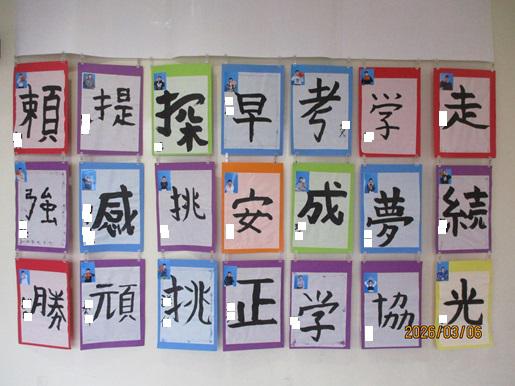 頼 提 探 早 考 学 走
強 感 挑 安 成 夢 続
勝 頑 挑 正 学 協 光
2026/03/06